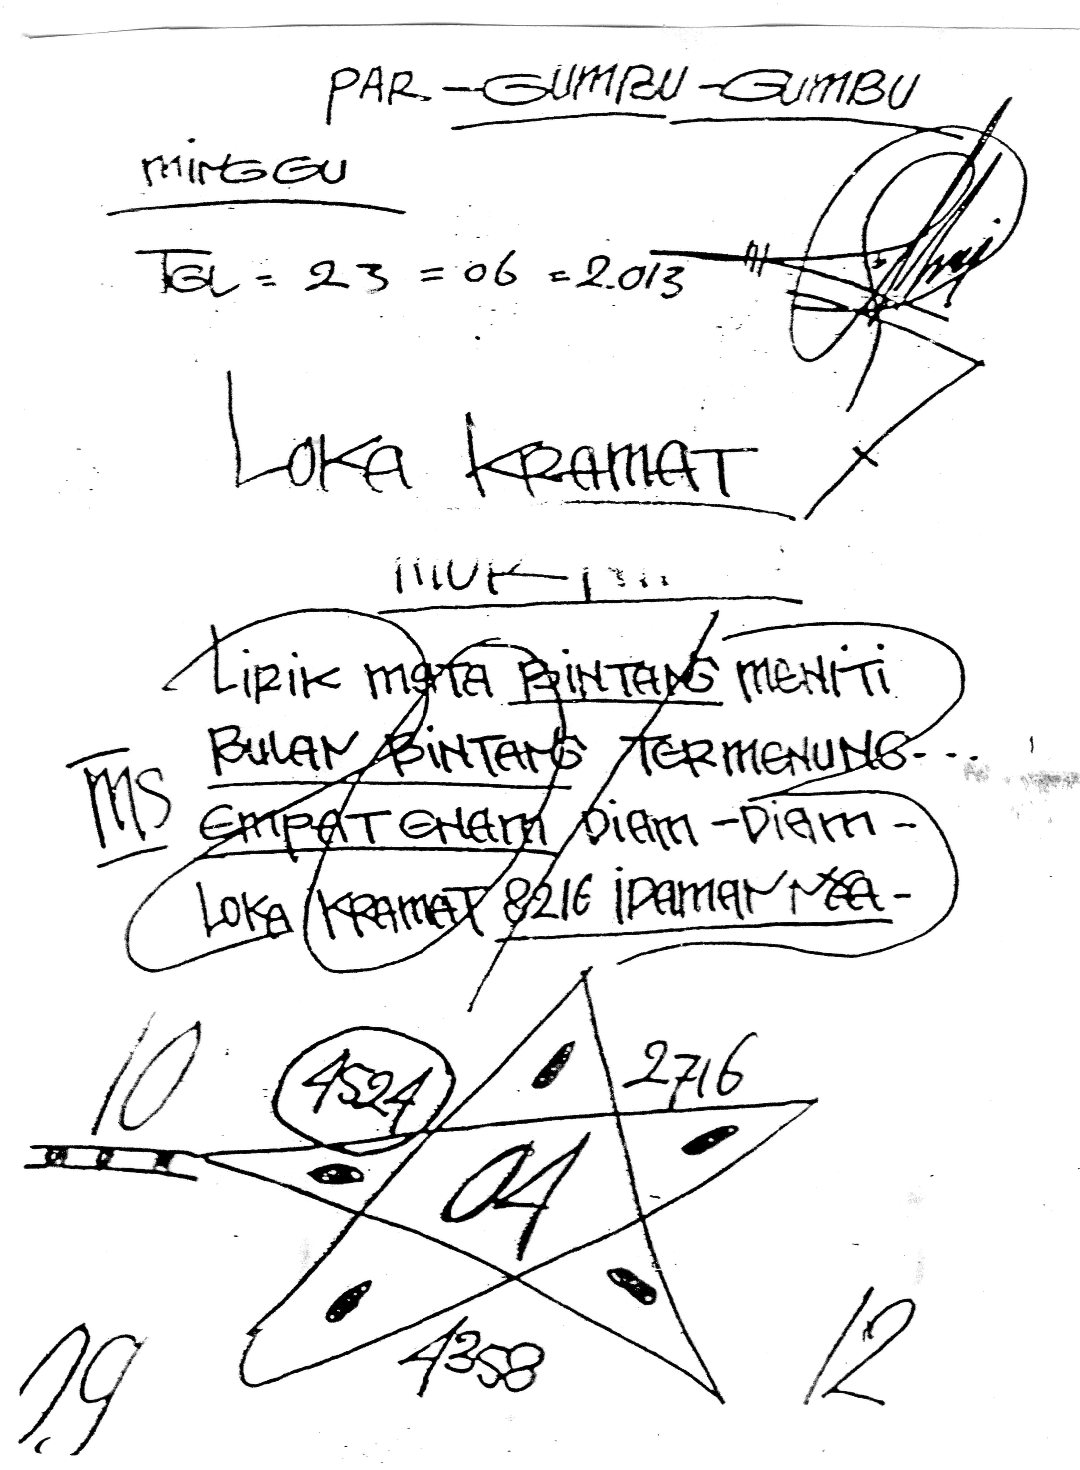 PAR - GUMBU - GUMBU
MINGGU
TGL = 23 = 06 = 2.013
LOKA KRAMAT
LIRIK MATA BINTANG MENITI
BULAN BINTANG TERMENUNG...
MS
EMPAT ENAM DIAM - DIAM -
LOKA KRAMAT 8216 IDAMANNYA -
10
4524
2716
04
4358
12